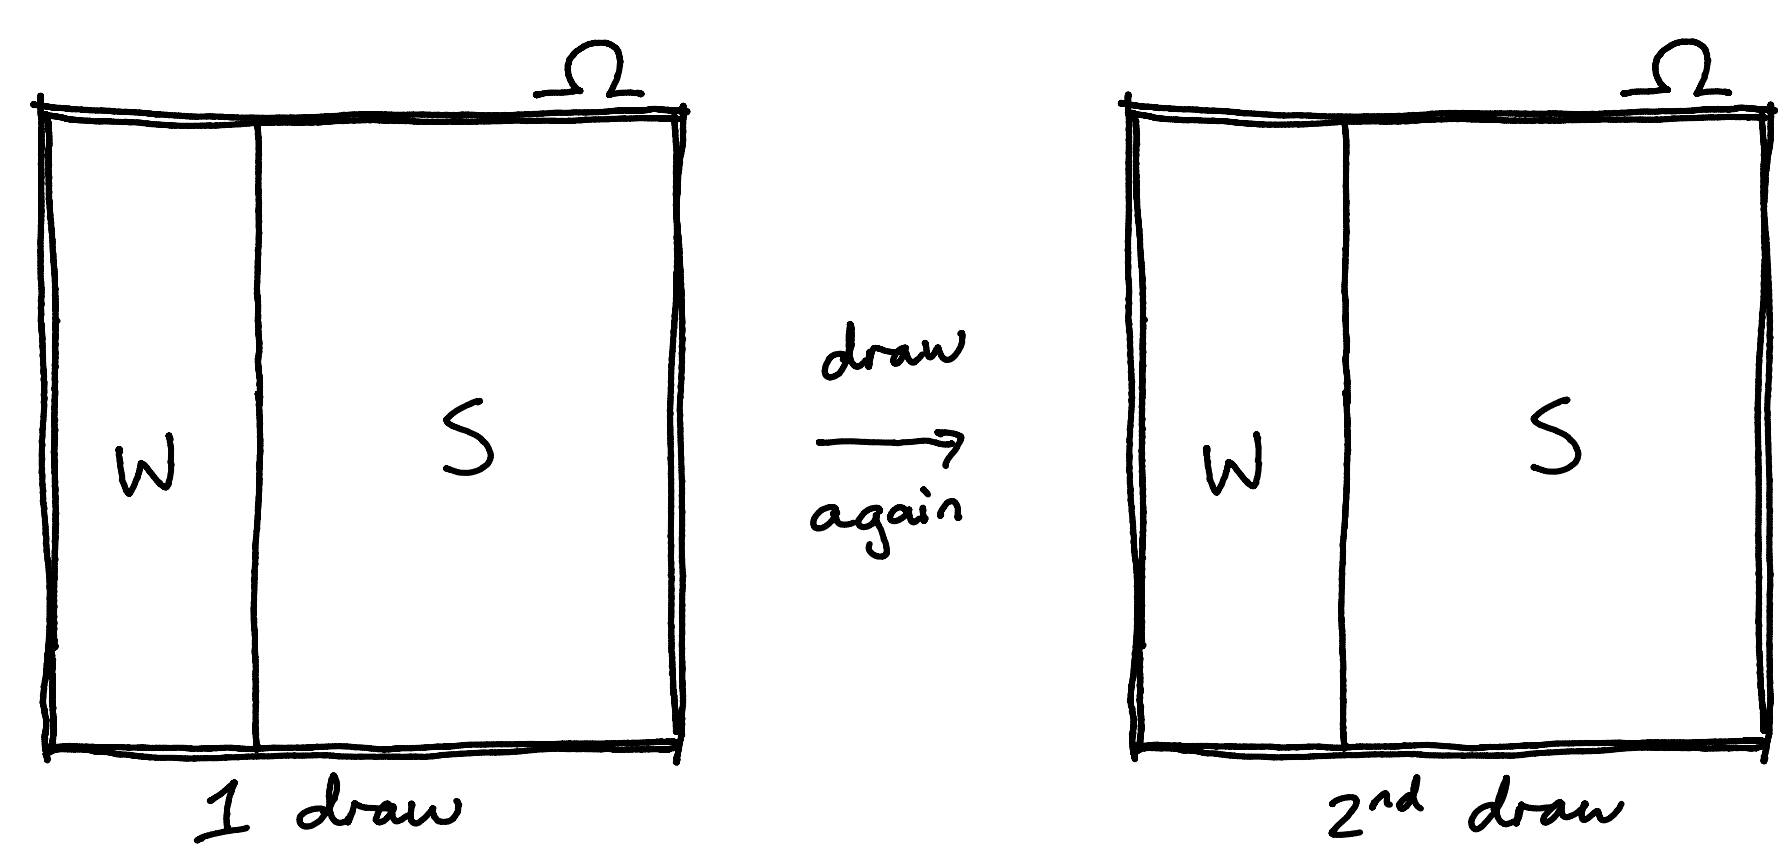 Ω
W
S
1 draw
draw
again
Ω
W
S
2nd draw